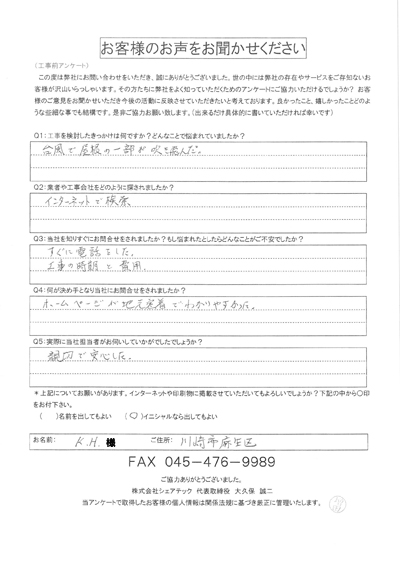 お客様のお声をお聞かせください
(工事前アンケート)
この度は弊社にお問い合わせをいただき、誠にありがとうございました。世の中には弊社の存在やサービスをご存知ないお
客様が沢山いらっしゃいます。その方たちに弊社をよく知っていただくためのアンケートにご協力いただけるでしょうか? お客
様のご意見をお聞かせいただき今後の活動に反映させていただきたいと考えております。良かったこと、嬉しかったことどのよ
うな些細な事でも結構です。是非ご協力お願い致します。(出来るだけ具体的に書いていただければ幸いです)
Q1:工事を検討したきっかけは何ですか?どんなことで悩まれていましたか?
台風で屋根の一部が吹き飛んだ。
Q2:業者や工事会社をどのように探されましたか?
インターネットで検索
Q3:当社を知りすぐにお問合せをされましたか?もし悩まれたとしたらどんなことがご不安でしたか?
すぐに電話をした。
工事の時期と費用。
Q4:何が決め手となり当社にお問合せをされましたか?
ホームページが地元密着でわかりやすかった。
Q5:実際に当社担当者がお伺いしていかがでしたでしょうか?
親切で安心した。
*上記についてお願いがあります。インターネットや印刷物に掲載させていただいてもよろしいでしょうか?下記の中から〇印
をお付下さい。
( )名前を出してもよい (〇)イニシャルなら出してもよい
お名前: K.H. 様 ご住所: 川崎市麻生区
FAX 045-476-9989
ご協力ありがとうございました。
株式会社シェアテック 代表取締役 大久保 誠二
当アンケートで取得したお客様の個人情報は関係法規に基づき厳正に管理いたします。